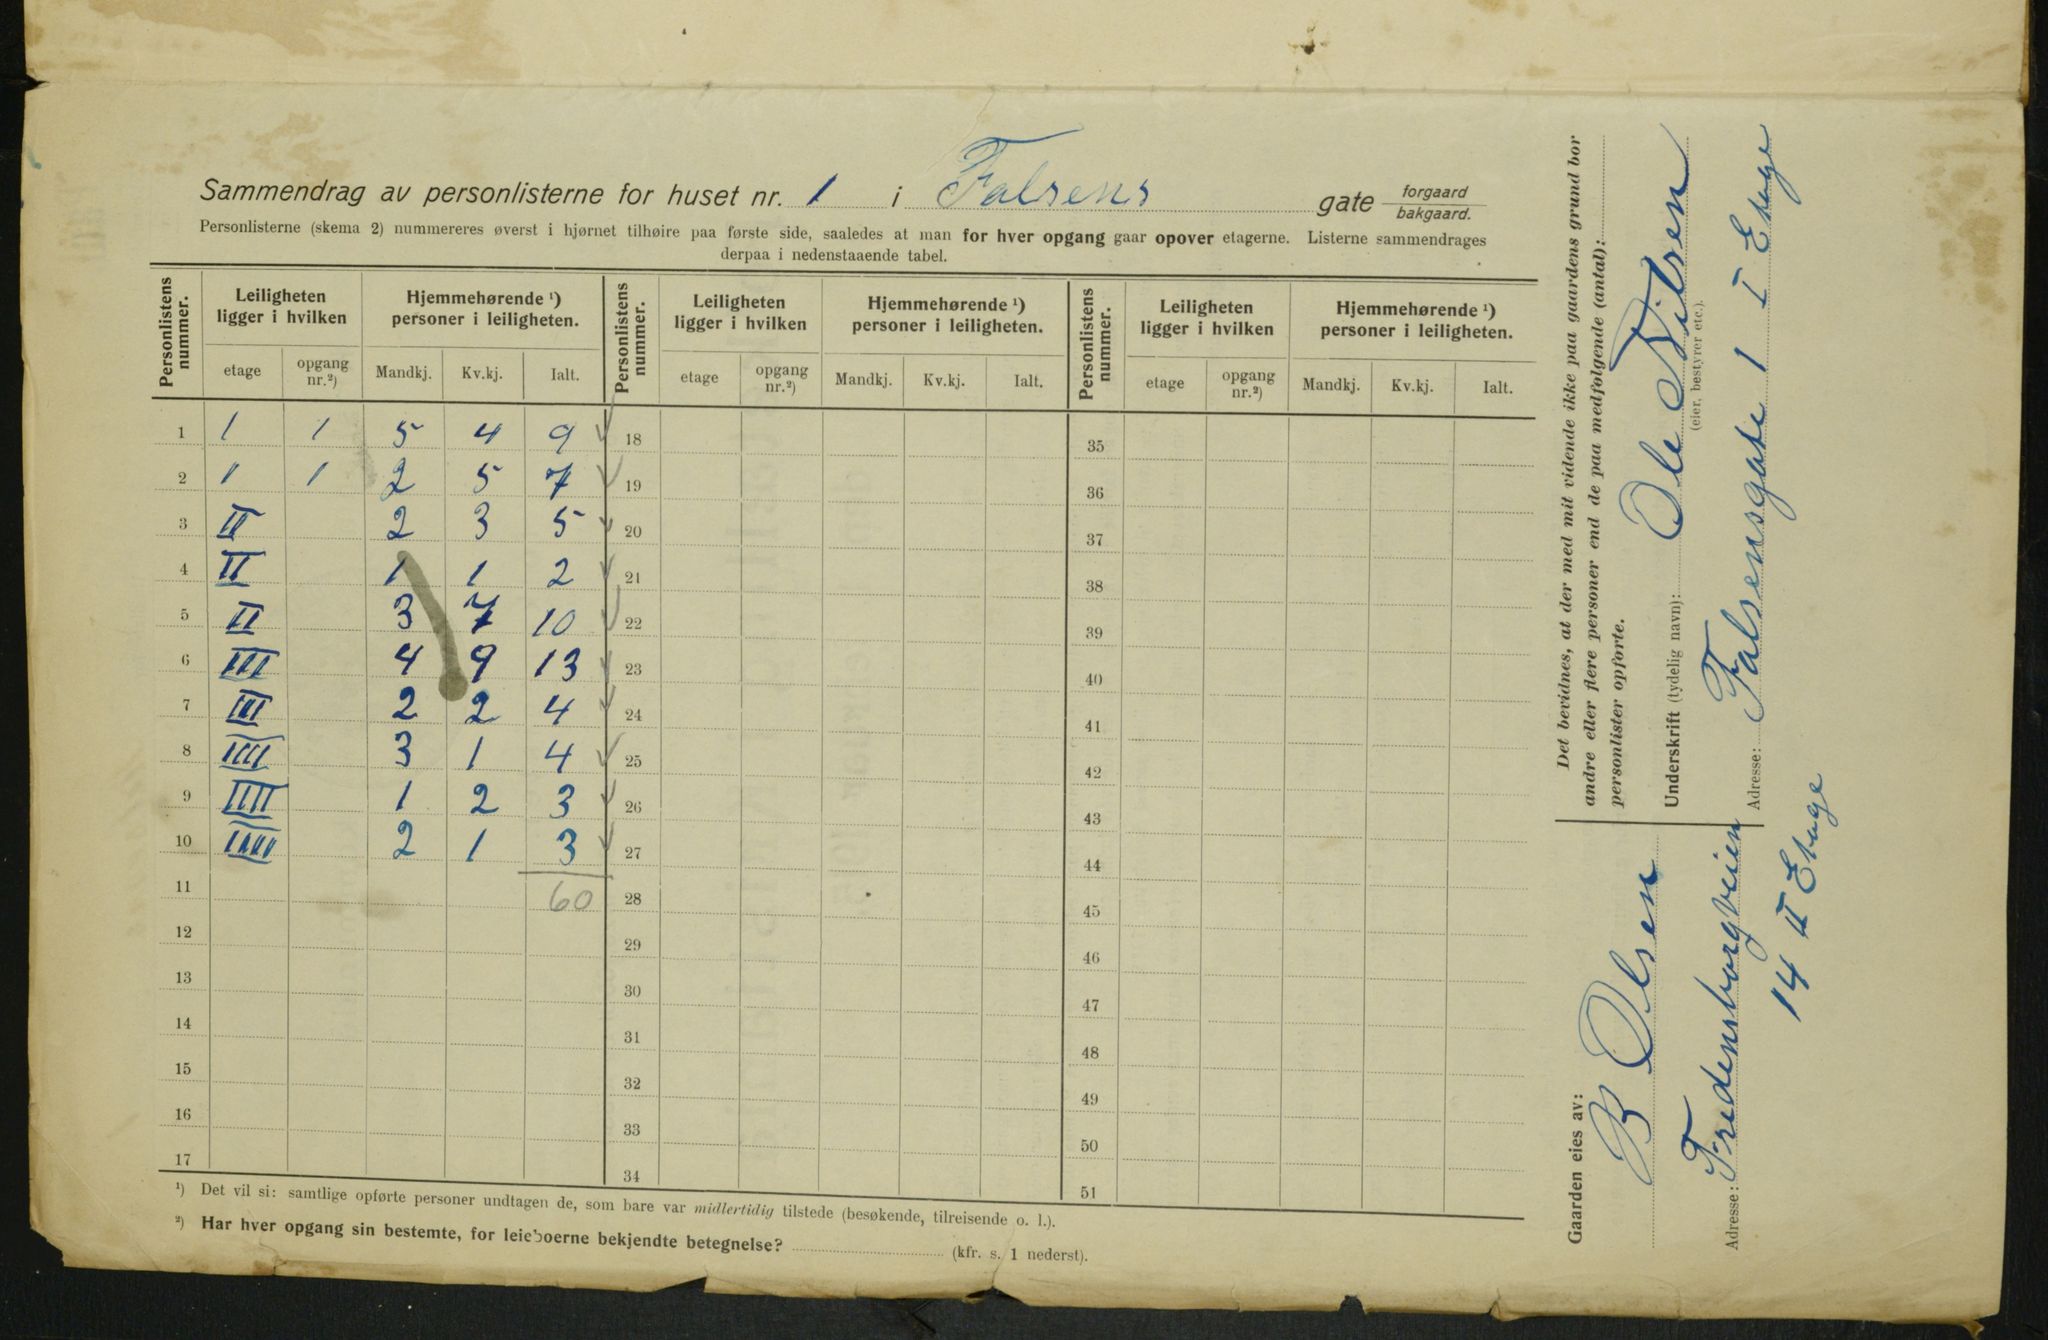 Sammendrag av personlisterne for huset nr. 1 i Falsens gate forgaard
bakgaard.
Personlisterne (skema 2) nummereres øverst i hjørnet tilhøire paa første side, saaledes at man for hver opgang gaar opover etagerne. Listerne sammendrages
derpaa i nedenstaaende tabel.
Personlistens nummer. Leiligheten ligger i hvilken Hjemmehørende ¹) personer i leiligheten. Personlistens nummer. Leiligheten ligger i hvilken Hjemmehørende ¹) personer i leiligheten. Personlistens nummer. Leiligheten ligger i hvilken Hjemmehørende ¹) personer i leiligheten.
etage opgang nr.²) Mandkj. Kv.kj. Ialt. etage opgang nr.²) Mandkj. Kv.kj. Ialt. etage opgang nr.²) Mandkj. Kv.kj. Ialt.
1 1 1 5 4 9 ✓ 18 35
2 1 1 2 5 7 ✓ 19 36
3 II 2 3 5 ✓ 20 37
4 II 1 1 2 ✓ 21 38
5 II 3 7 10 ✓ 22 39
6 III 4 9 13 ✓ 23 40
7 III 2 2 4 ✓ 24 41
8 IIII 3 1 4 ✓ 25 42
9 IIII 1 2 3 ✓ 26 43
10 IIII 2 1 3 ✓ 27 44
11 60 28 45
12 29 46
13 30 47
14 31 48
15 32 49
16 33 50
17 34 51
¹) Det vil si: samtlige opførte personer undtagen de, som bare var midlertidig tilstede (besøkende, tilreisende o. l.).
²) Har hver opgang sin bestemte, for leieboerne bekjendte betegnelse? (kfr. s. 1 nederst).
Det bevidnes, at der med mit vidende ikke paa gaardens grund bor
andre eller flere personer end de paa medfølgende (antal):
personlister opførte.
Underskrift (tydelig navn): Ole Nilsen
(eier, bestyrer etc.).
Adresse: Falsensgate 1 I Etage
Gaarden eies av:
B Olsen
Adresse: Fredensborgveien
14 II Etage